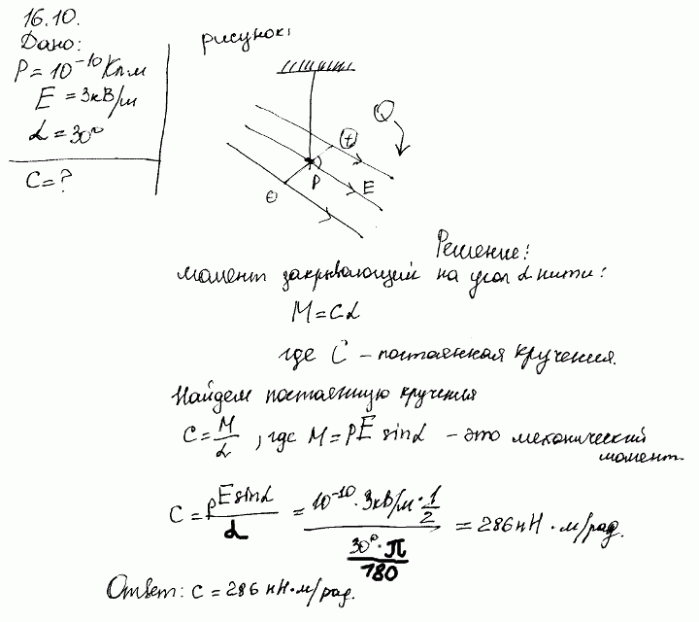 16.10.
Дано:
P = 10⁻¹⁰ Кл·м
E = 3кВ/м
α = 30°
C = ?
рисунок:
Q
+
P
E
Θ
Решение:
момент закрывающий на угол α нити:
M = Cα
где C – постоянная кручения.
Найдем постоянную кручения
C = M/α, где M = PE sinα – это механический
момент.
C = pE sinα/α = 10⁻¹⁰ · 3кВ/м · 1/2 / 30° · π/180 = 286 нН · м/рад.
Ответ: C = 286 нН·м/рад.